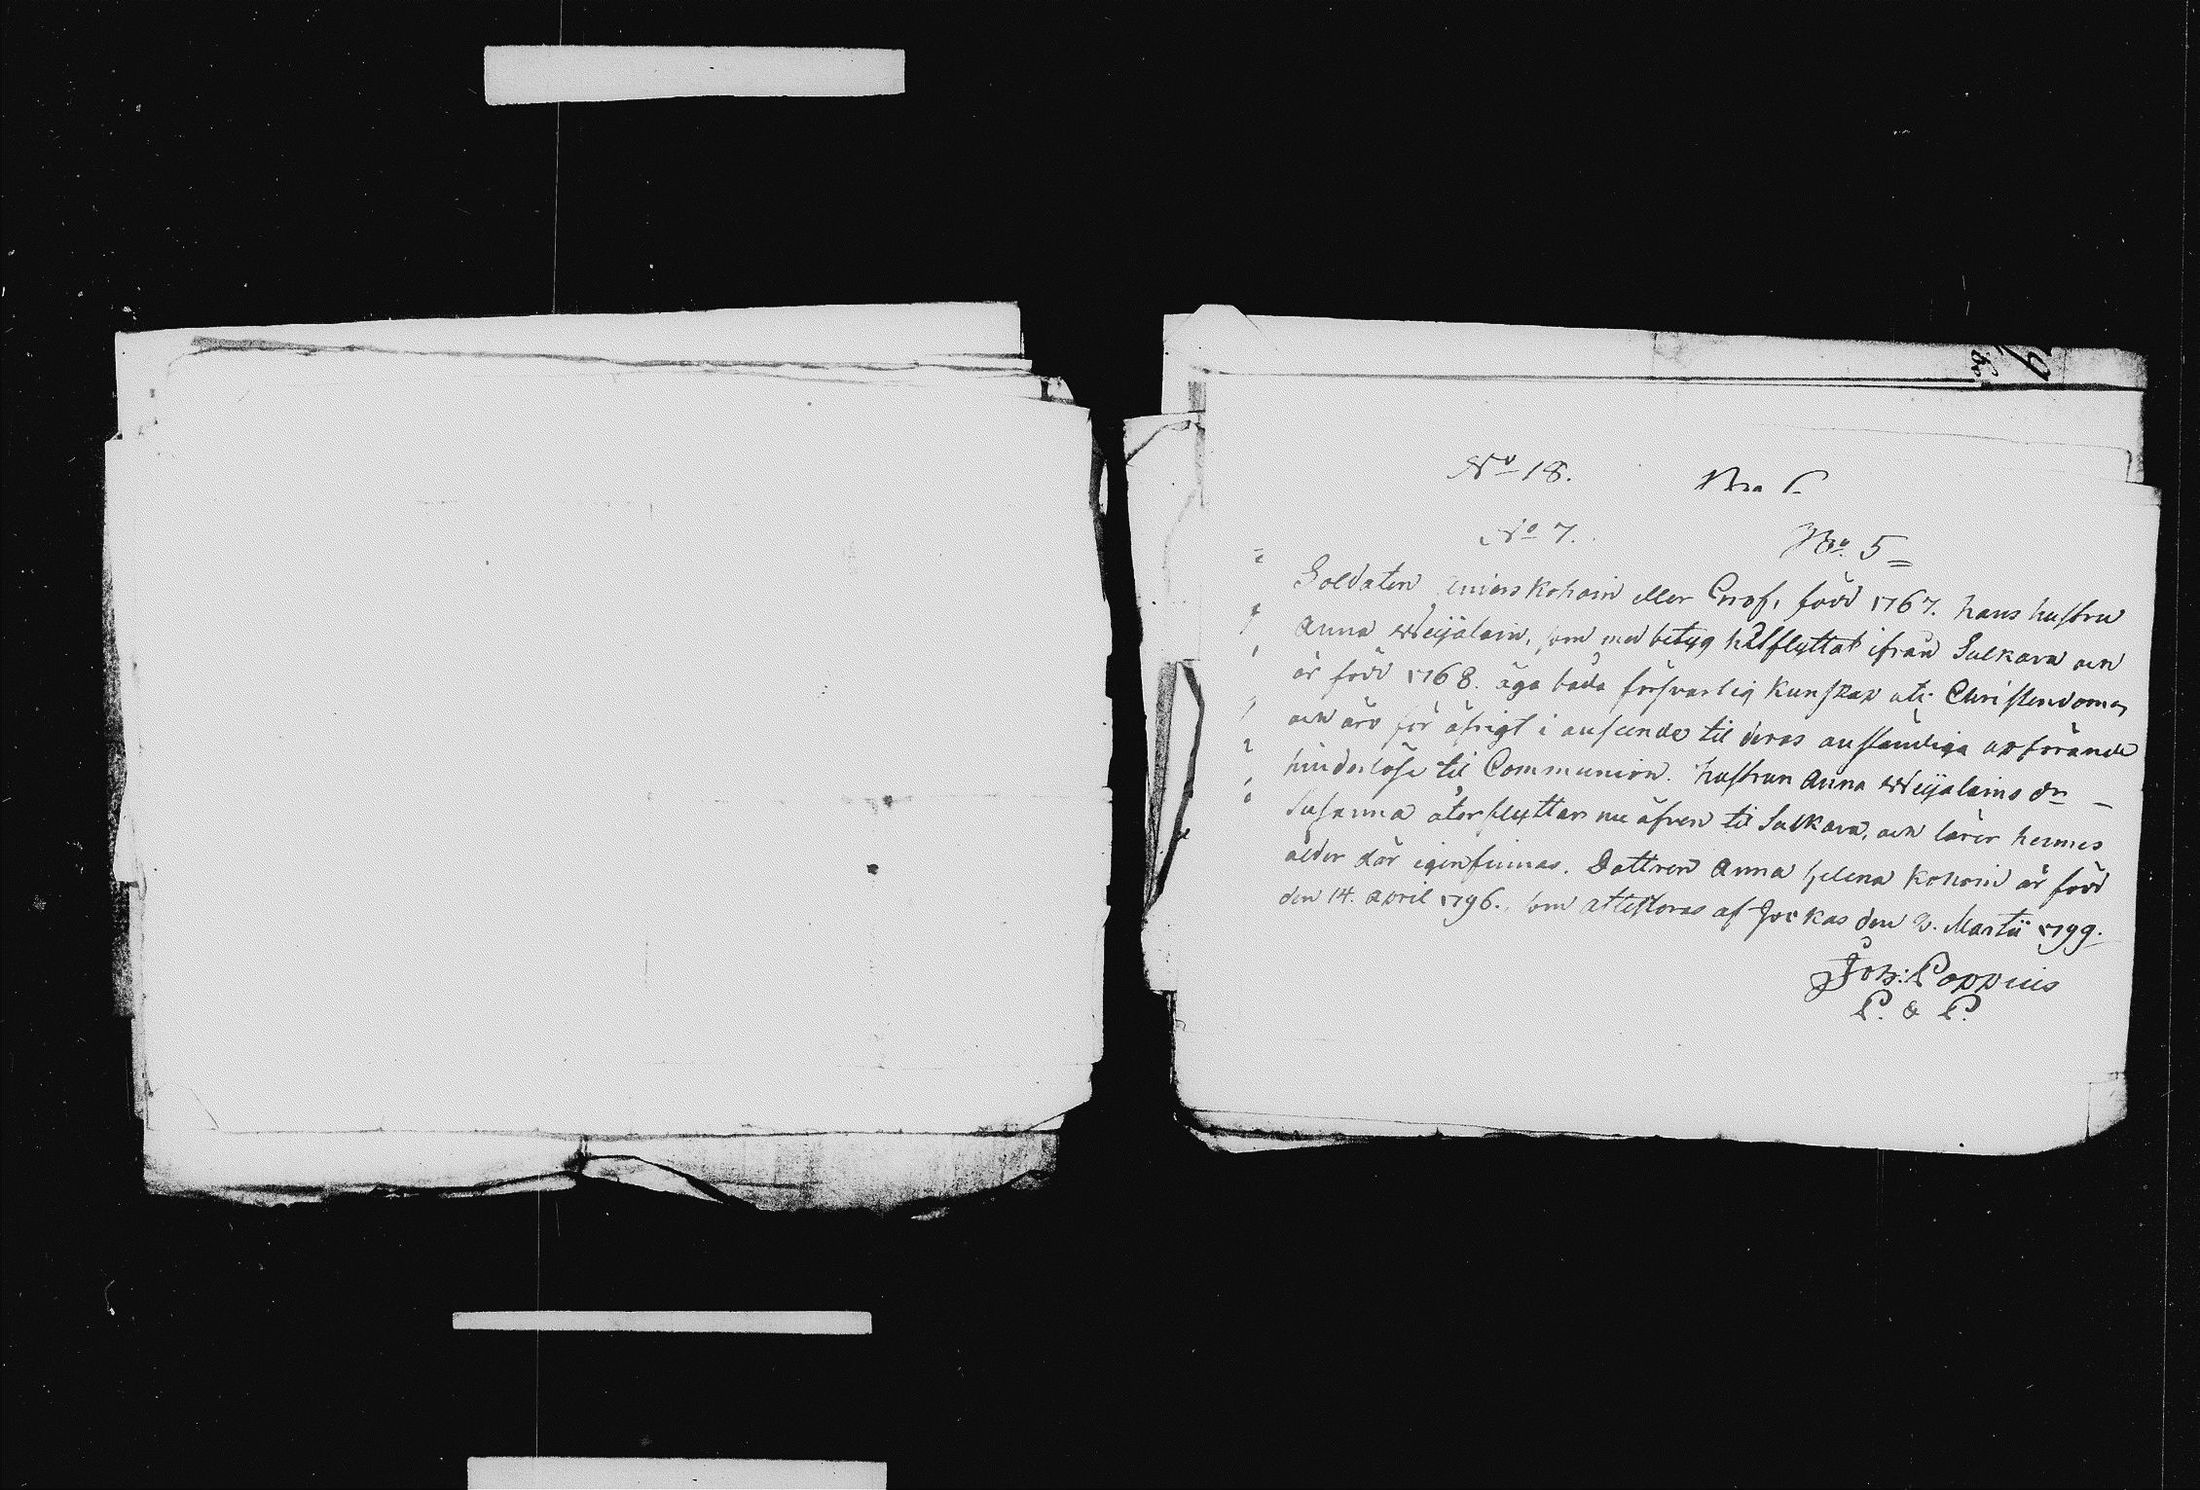 No 18.
No 7.
No. 5
Soldaten Kohoin eller född 1767. hans hustru
Anna Weijalain, som med betyg hitflyttat ifrån Sulkava och
är född 1768. äga båda försvarlig kunskap uti Christendomen
och äro för öfrigt i anseende til deras anständiga upförande
hinderlöse til Communion. hustrun Anna Weijalains dr
Susanna återflyttar nu äfven til Sulkava, och lärer hennes
ålder där igenfinnas. Dottren Anna Helena Kohoin är född
den 14. april 1796. som attesteras af Jockas den Martii 1799.
Joh: Poppius
P. & P.